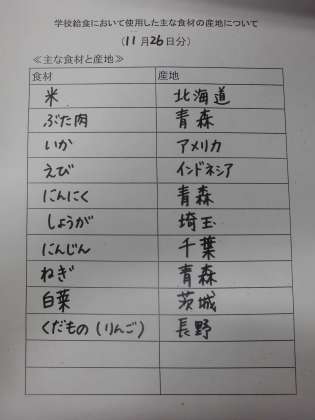 学校給食において使用した主な食材の産地について
(11月26日分)
≪主な食材と産地≫
食材 産地
米 北海道
ぶた肉 青森
いか アメリカ
えび インドネシア
にんにく 青森
しょうが 埼玉
にんじん 千葉
ねぎ 青森
白菜 茨城
くだもの(りんご) 長野